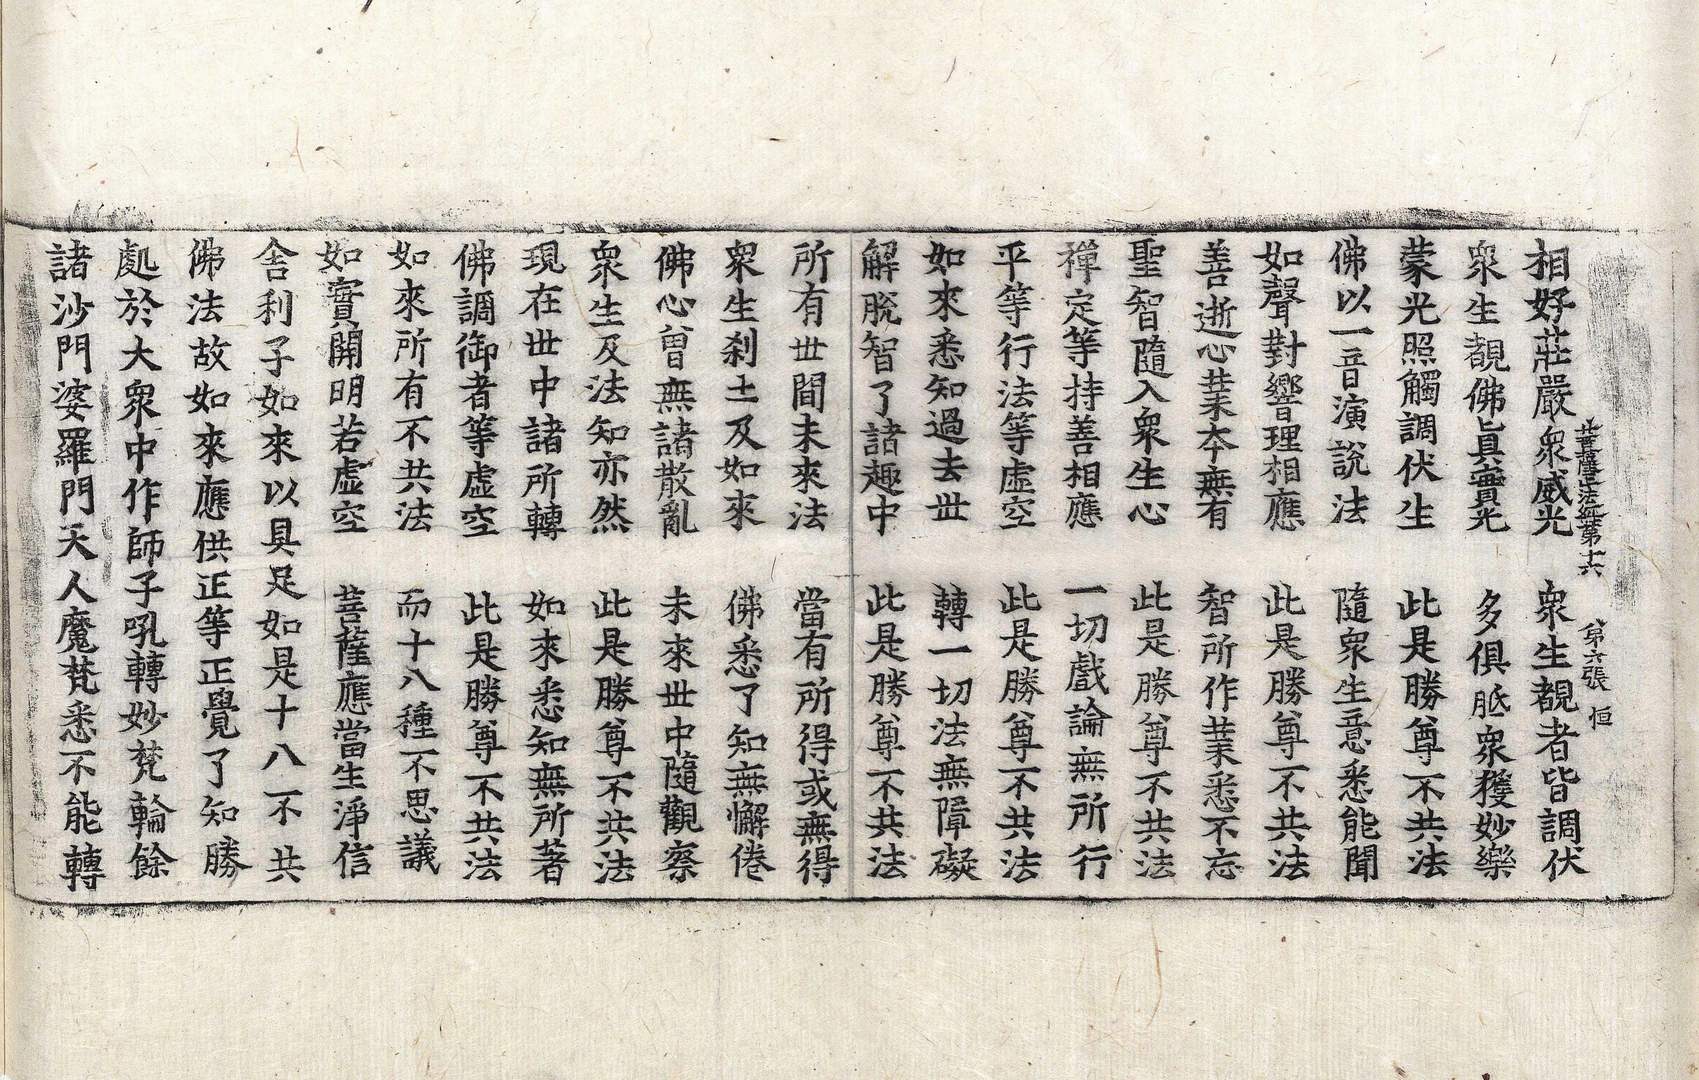 相好莊嚴衆威光　衆生覩者皆調伏
菩薩藏正法經第十六　第六張　恒
衆生覩佛眞實光　多俱胝衆獲妙樂
蒙光照觸調伏生　此是勝尊不共法
佛以一音演說法　隨衆生意悉能聞
如聲對響理相應　此是勝尊不共法
善逝心業夲無有　智所作業悉不忘
聖智隨入衆生心　此是勝尊不共法
禪定等持善相應　一切戲論無所行
平等行法等虛空　此是勝尊不共法
如來悉知過去世　轉一切法無障礙
解脫智了諸趣中　此是勝尊不共法
所有世間未來法　當有所得或無得
衆生刹土及如來　佛悉了知無懈倦
佛心曾無諸散亂　未來世中隨觀察
衆生及法知亦然　此是勝尊不共法
現在世中諸所轉　如來悉知無所著
佛調御者等虛空　此是勝尊不共法
如來所有不共法　而十八種不思議
如實開明若虛空　菩薩應當生淨信
舍利子如來以具足如是十八不共
佛法故如來應供正等正覺了知勝
處於大衆中作師子吼轉妙梵輪餘
諸沙門婆羅門天人魔梵悉不能轉